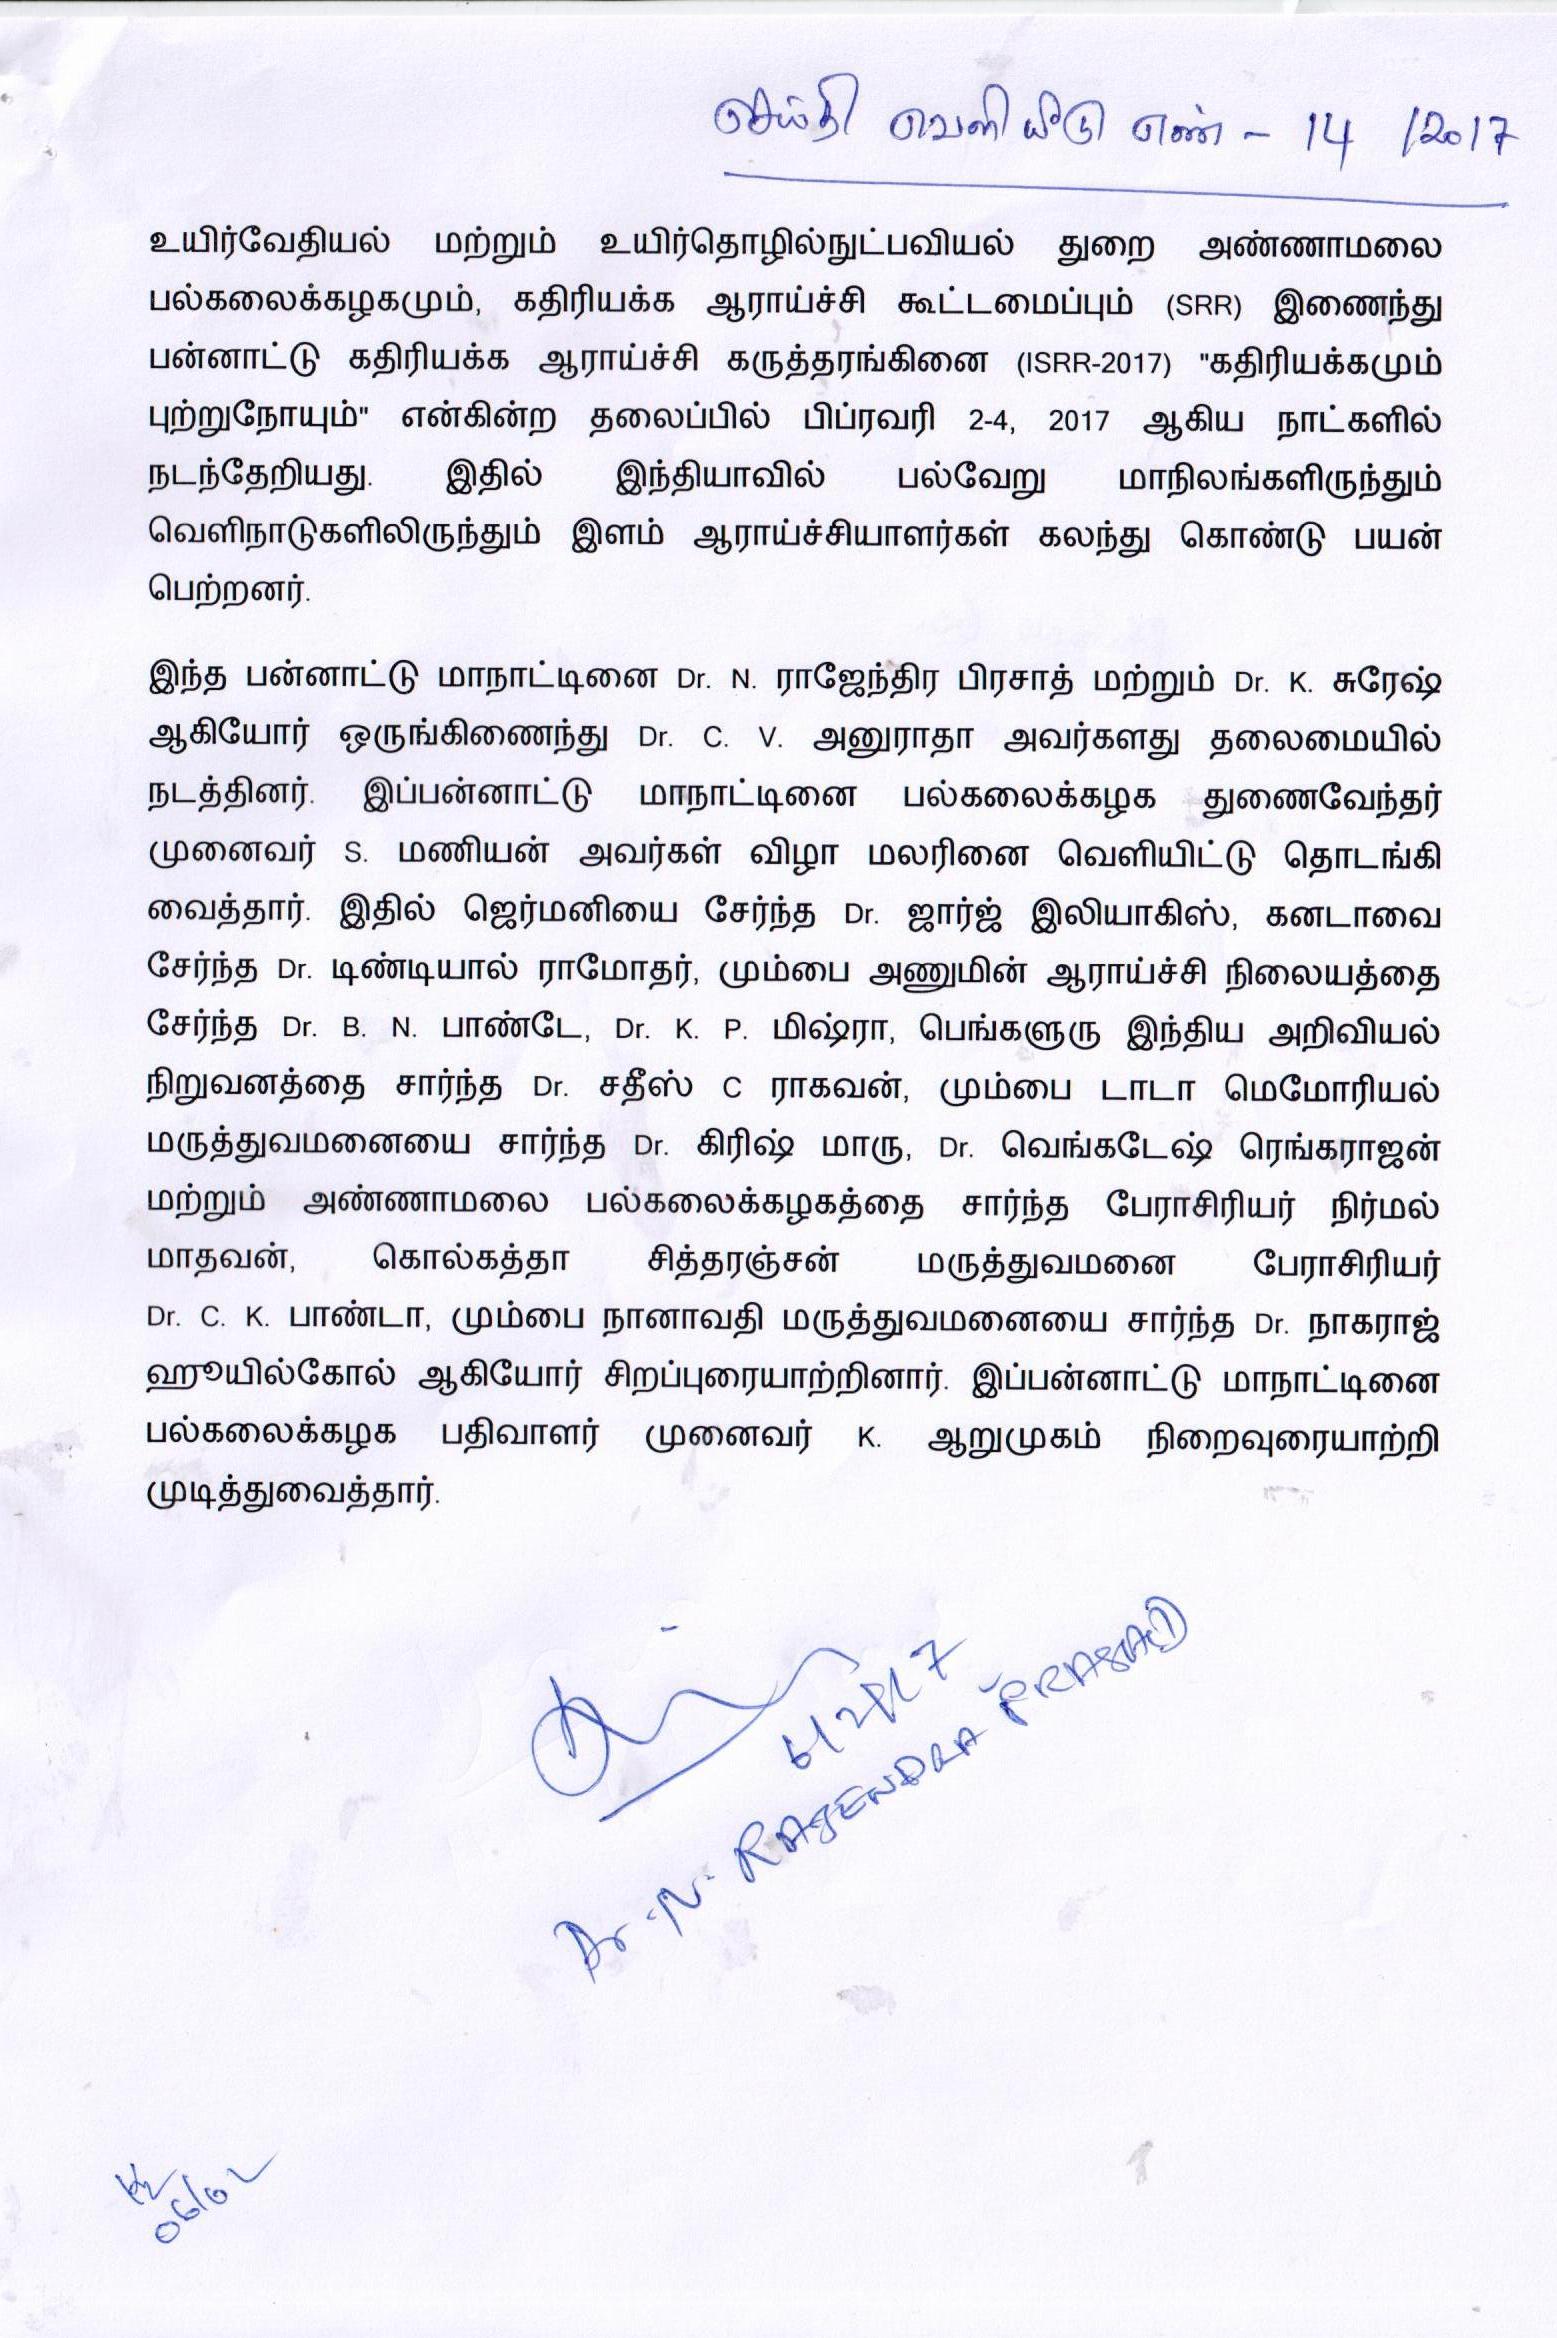 செய்தி வெளியீடு எண் - 14 /2017
உயிர்வேதியல் மற்றும் உயிர்தொழில்நுட்பவியல் துறை அண்ணாமலை
பல்கலைக்கழகமும், கதிரியக்க ஆராய்ச்சி கூட்டமைப்பும் (SRR) இணைந்து
பன்னாட்டு கதிரியக்க ஆராய்ச்சி கருத்தரங்கினை (ISRR-2017) "கதிரியக்கமும்
புற்றுநோயும்" என்கின்ற தலைப்பில் பிப்ரவரி 2-4, 2017 ஆகிய நாட்களில்
நடந்தேறியது. இதில் இந்தியாவில் பல்வேறு மாநிலங்களிருந்தும்
வெளிநாடுகளிலிருந்தும் இளம் ஆராய்ச்சியாளர்கள் கலந்து கொண்டு பயன்
பெற்றனர்.
இந்த பன்னாட்டு மாநாட்டினை Dr. N. ராஜேந்திர பிரசாத் மற்றும் Dr. K. சுரேஷ்
ஆகியோர் ஒருங்கிணைந்து Dr. C. V. அனுராதா அவர்களது தலைமையில்
நடத்தினர். இப்பன்னாட்டு மாநாட்டினை பல்கலைக்கழக துணைவேந்தர்
முனைவர் S. மணியன் அவர்கள் விழா மலரினை வெளியிட்டு தொடங்கி
வைத்தார். இதில் ஜெர்மனியை சேர்ந்த Dr. ஜார்ஜ் இலியாகிஸ், கனடாவை
சேர்ந்த Dr. டிண்டியால் ராமோதர், மும்பை அணுமின் ஆராய்ச்சி நிலையத்தை
சேர்ந்த Dr. B. N. பாண்டே, Dr. K. P. மிஷ்ரா, பெங்களுரு இந்திய அறிவியல்
நிறுவனத்தை சார்ந்த Dr. சதீஸ் C ராகவன், மும்பை டாடா மெமோரியல்
மருத்துவமனையை சார்ந்த Dr. கிரிஷ் மாரு, Dr. வெங்கடேஷ் ரெங்கராஜன்
மற்றும் அண்ணாமலை பல்கலைக்கழகத்தை சார்ந்த பேராசிரியர் நிர்மல்
மாதவன், கொல்கத்தா சித்தரஞ்சன் மருத்துவமனை பேராசிரியர்
Dr. C. K. பாண்டா, மும்பை நானாவதி மருத்துவமனையை சார்ந்த Dr. நாகராஜ்
ஹூயில்கோல் ஆகியோர் சிறப்புரையாற்றினார். இப்பன்னாட்டு மாநாட்டினை
பல்கலைக்கழக பதிவாளர் முனைவர் K. ஆறுமுகம் நிறைவுரையாற்றி
முடித்துவைத்தார்.
6/2/17
Dr. N. RAJENDRA PRASAD
06/02